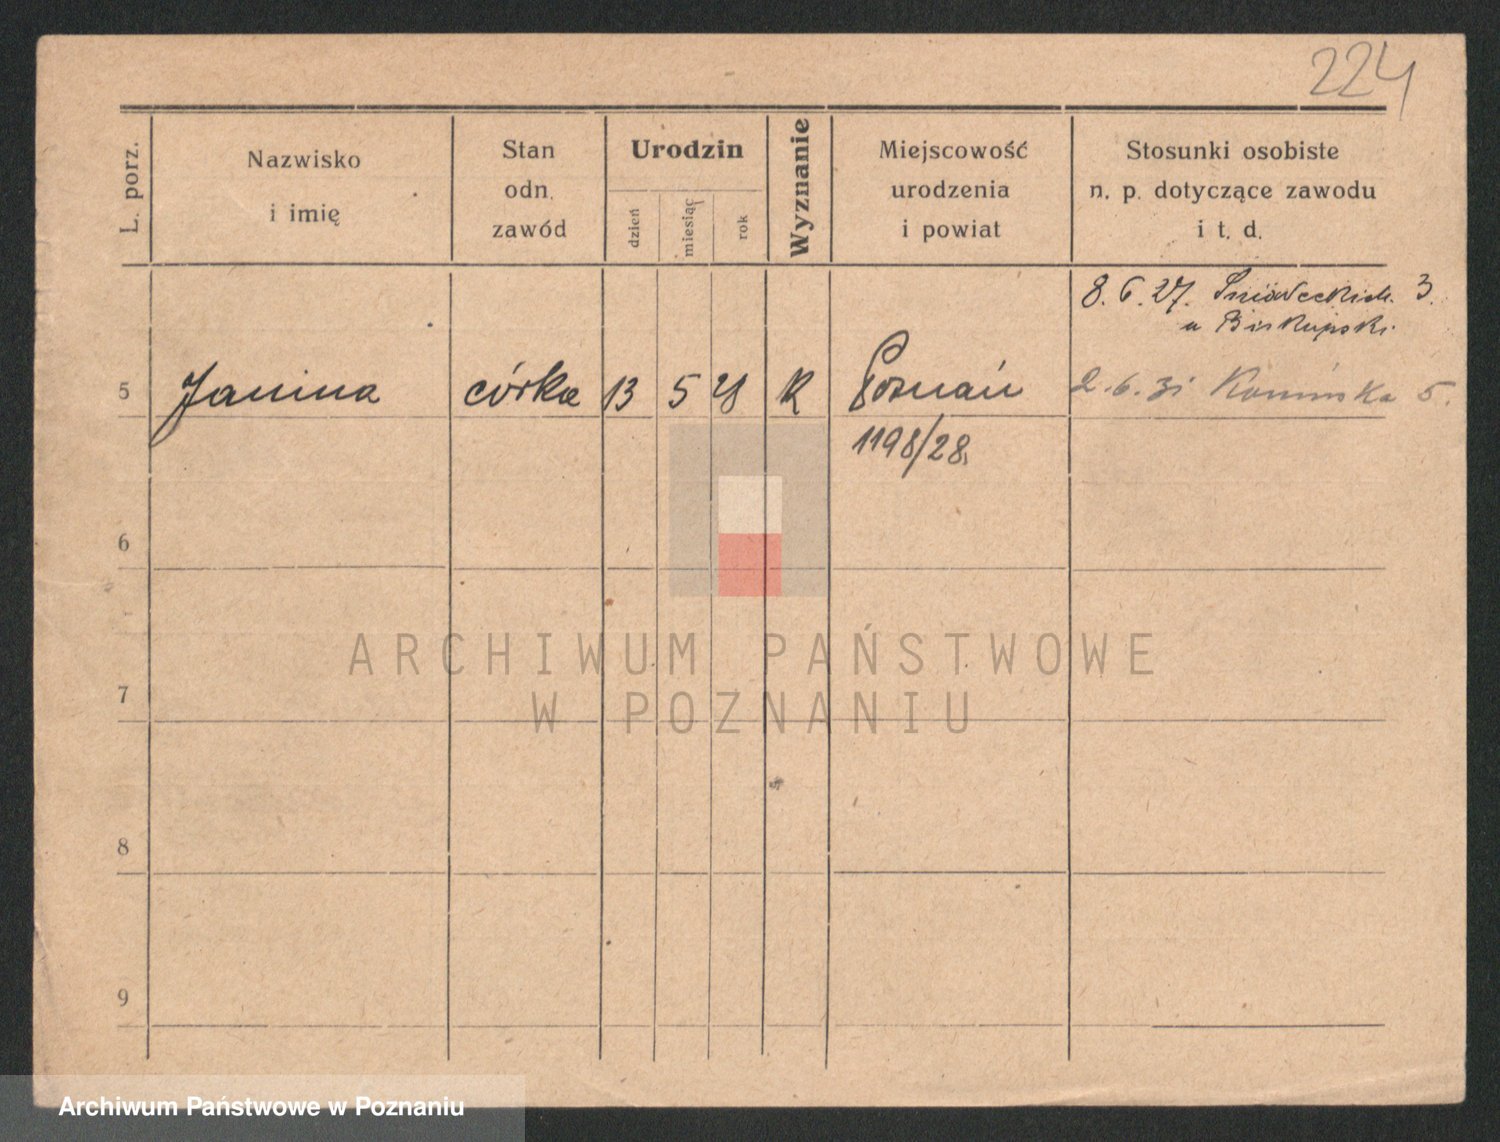 224
L. porz.
Nazwisko
i imię
Stan
odn.
zawód
Urodzin
dzień
miesiąc
rok
Wyznanie
Miejscowość
urodzenia
i powiat
Stosunki osobiste
n. p. dotyczące zawodu
i t. d.
8. 6. 27. Śniadeckich. 3.
u Biskupski.
5 Janina córka 13 5 28 R Poznań 2.6.31 Konińska 5.
1198/28.
6
7
8
9
ARCHIWUM PAŃSTWOWE
W POZNANIU
Archiwum Państwowe w Poznaniu